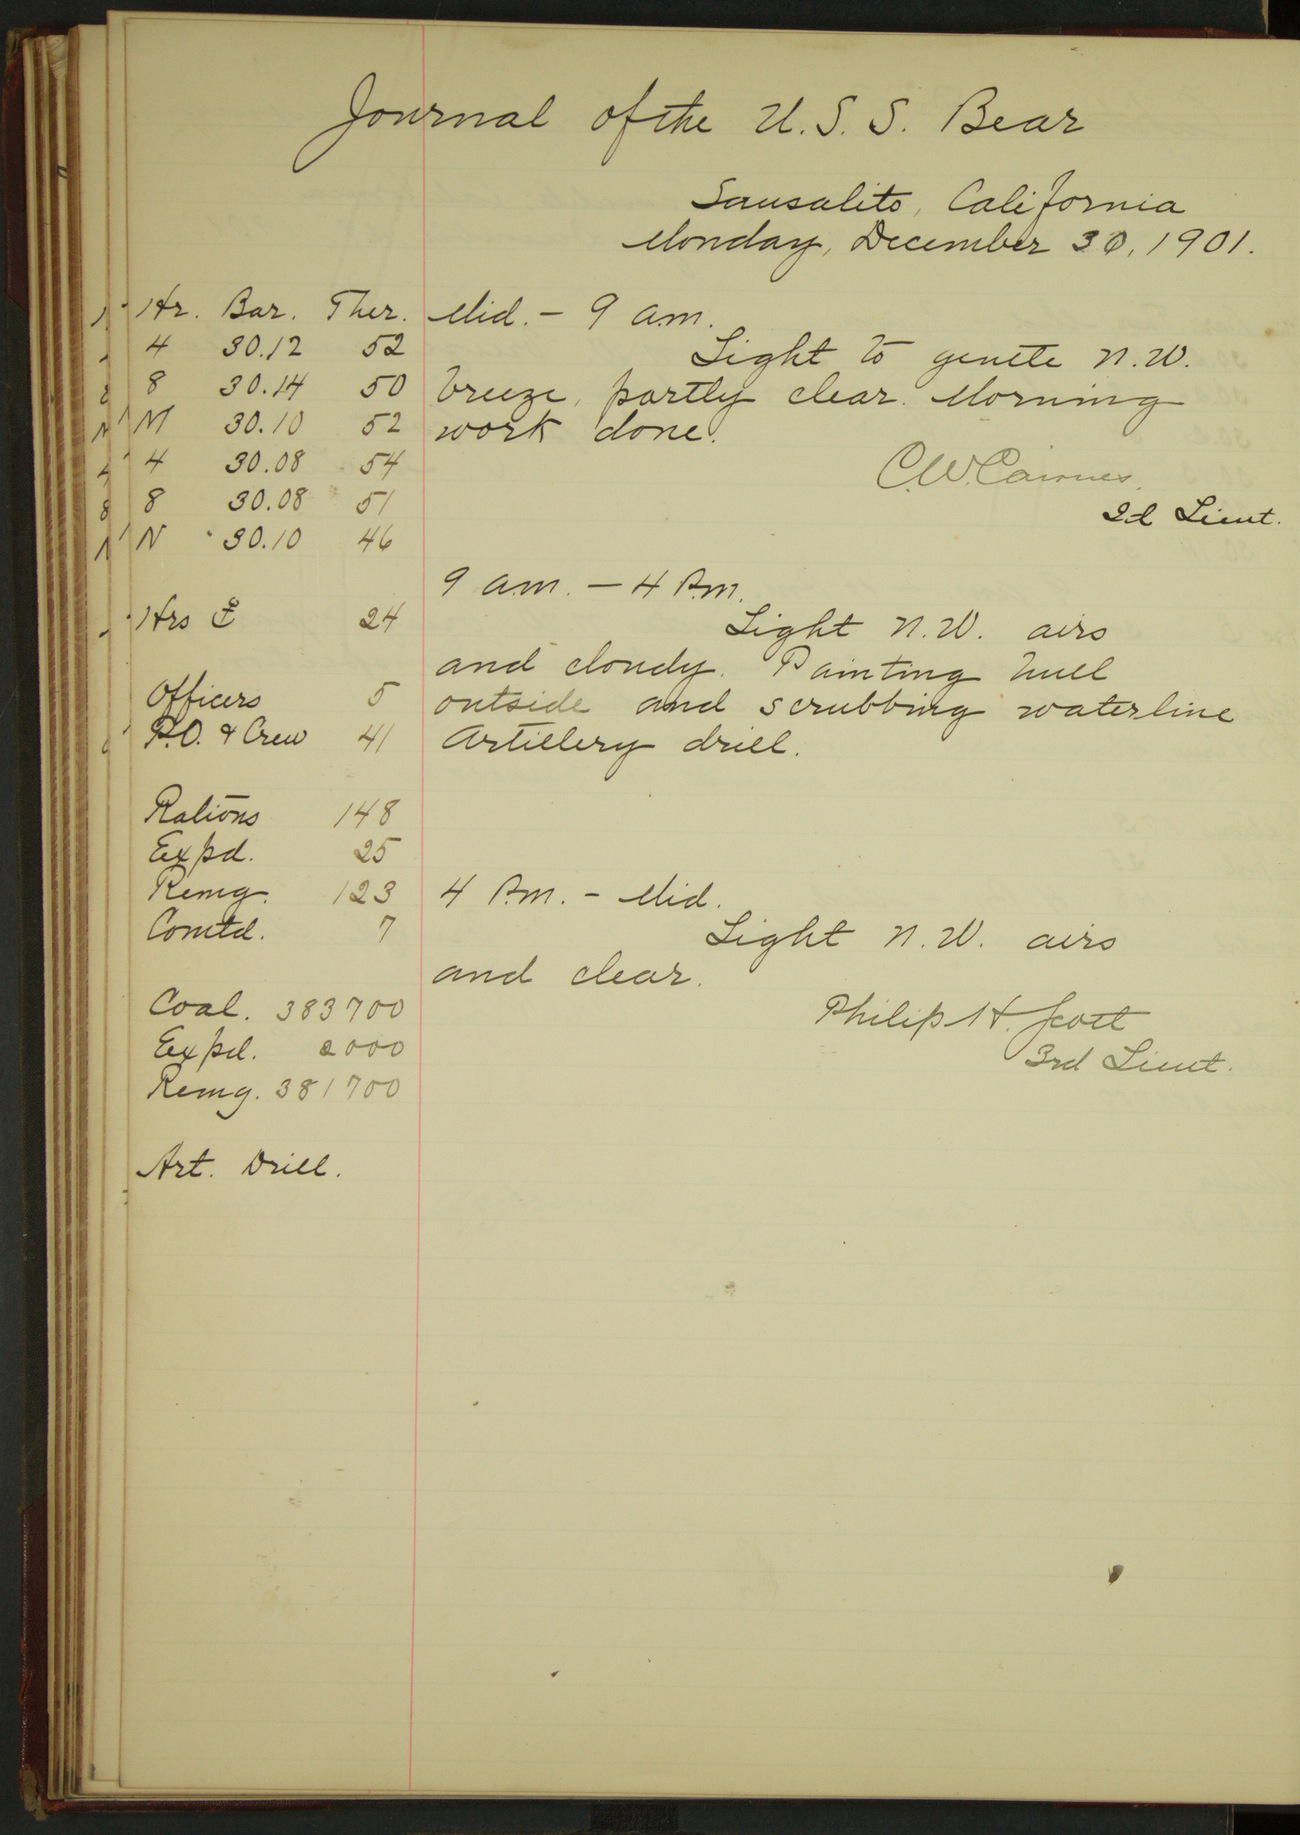 Journal of the U.S.S. Bear
Sausalito, California
Monday, December 30, 1901.
Hr. Bar. Ther.
4 30.12 52
8 30.14 50
M 30.10 52
4 30.08 54
8 30.08 51
N 30.10 46
Hrs 24
Officers 5
P.O. & Crew 41
Rations 148
Expd. 25
Remg. 123
Comtd. 7
Coal. 383700
Expd. 2000
Remg. 381700
Art. Drill.
Mid. - 9 a.m.
Light to gentle N.W.
breeze, partly clear. Morning
work done.
C.W. Cairnes.
2d Lieut.
9 a.m. - 4 P.m.
Light N.W. airs
and cloudy. Painting hull
outside and scrubbing waterline
Artillery drill.
4 P.m. - Mid.
Light N.W. airs
and clear.
Philip H. Scott
3rd Lieut.